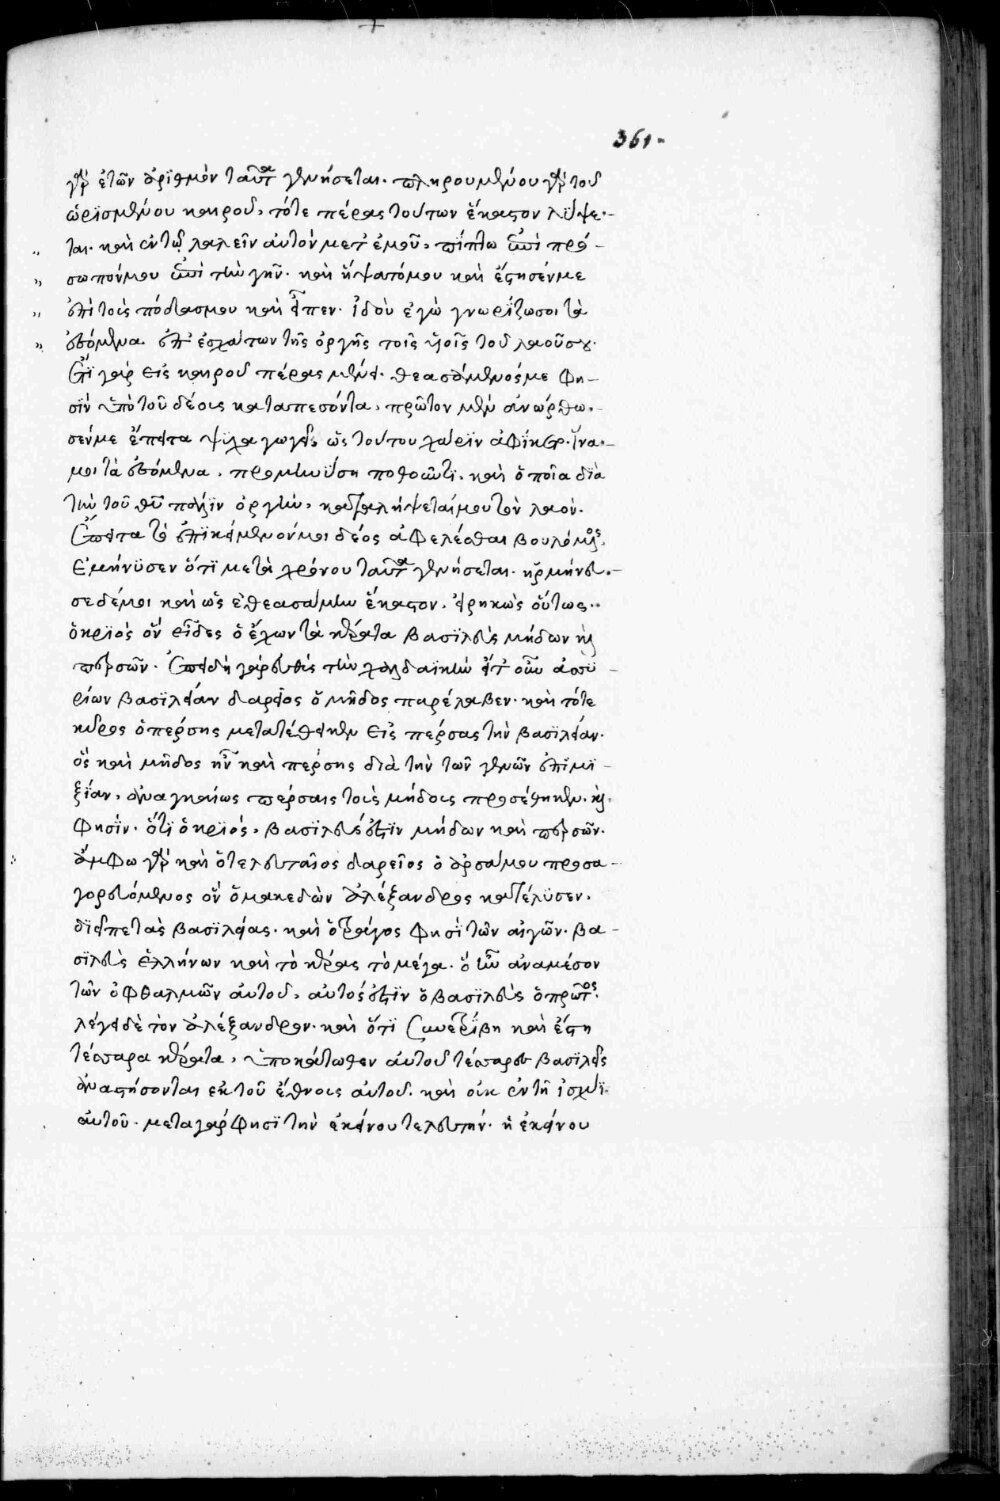 361.
γὰρ ἐτῶν ἀριθμὸν ταῦτα γενήσεται. πληρουμένου γὰρ τοῦ
ὡρϊσμένου καιροῦ, τότε πέρας τούτων ἕκαστον λήψε-
ται. καὶ ἐν τῷ λαλεῖν αὐτὸν μετ' ἐμοῦ, πίπτω ἐπὶ πρό-
σωπόν μου ἐπὶ τὴν γῆν. καὶ ἥψατό μου καὶ ἔστησέν με
ἐπὶ τοὺς πόδας μου καὶ εἶπεν. ἰδοὺ ἐγὼ γνωρίζω σοι τὰ
ἐσόμενα ἐπ' ἐσχάτων τῆς ὀργῆς τοῖς υἱοῖς τοῦ λαοῦ σου.
ἔτϊ γὰρ εἰς καιροῦ πέρας μένει. θεασάμενός με φη-
σὶν ὑπὸ τοῦ δέους καταπεσόντα, πρῶτον μὲν ἀνώρθω-
σέν με ἔπειτα ψυχαγωγεῖ, ὡς τούτου χάριν ἀφῖκται. ἵνα
μοι τὰ ἐσόμενα, προμηνύσῃ ποθοῦντϊ. καὶ ὁποῖα διὰ
τὴν τοῦ θυ πάλϊν ὀργὴν, καταλήψεταί μου τὸν λαόν.
ἔπειτα τὸ ἐπικείμενόν μοι δέος ἀφελέσθαι βουλόμενος,
ἐμήνϋσεν ὅτϊ μετὰ χρόνου ταῦτα γενήσεται. ἡρμήνευ-
σε δέ μοι καὶ ὡς ἐθεασάμην ἕκαστον. εἰρηκὼς οὕτως.
ὁ κριὸς ὃν εἶδες ὁ ἔχων τὰ κέρατα βασιλεὺς μήδων καὶ
περσῶν. ἐπειδὴ γὰρ εὐθὺς τὴν χαλδαϊκὴν εἴτ' οὖν ἀσσυ-
ρίων βασϊλείαν δαρεῖος ὁ μῆδος παρέλαβεν. καὶ τότε
κῦρος ὁ πέρσης μετατέθεικεν εἰς πέρσας τὴν βασιλείαν.
ὃς καὶ μῆδος ἦν καὶ πέρσης διὰ τὴν τῶν γενῶν ἐπϊμϊ-
ξίαν, ἀναγκαίως πέρσαις τοὺς μήδους προσέθηκεν. καὶ
φησῒν. ὅτϊ ὁ κριὸς, βασϊλεύς ἐστϊν μήδων καὶ περσῶν.
ἄμφω γὰρ καὶ ὁ τελευταῖος δαρεῖος ὁ ἀρσάμου προσα-
γορευόμενος ὃν ὁ μακεδὼν ἀλέξανδρος κατέλϋσεν,
δϊεῖπε τὰς βασϊλείας. καὶ ὁ τράγος φησὶ τῶν αἰγῶν. βα-
σϊλεὺς ἑλλήνων καὶ τὸ κέρας τὸ μέγα. ὃ ἦν ἀναμέσον
τῶν ὀφθαλμῶν αὐτοῦ, αὐτός ἐστϊν ὁ βασϊλεὺς ὁ πρῶτος.
λέγει δὲ τὸν ἀλέξανδρον. καὶ ὅτϊ συνετρίβη καὶ ἔστη
τέσσαρα κέρατα, ὑποκάτωθεν αὐτοῦ τέσσαρες βασϊλεῖς
ἀναστήσονται ἐκ τοῦ ἔθνους αὐτοῦ. καὶ οὐκ ἐν τῇ ἰσχύϊ
αὐτοῦ. μετὰ γάρ φησϊ τὴν ἐκείνου τελευτήν. ἡ ἐκείνου